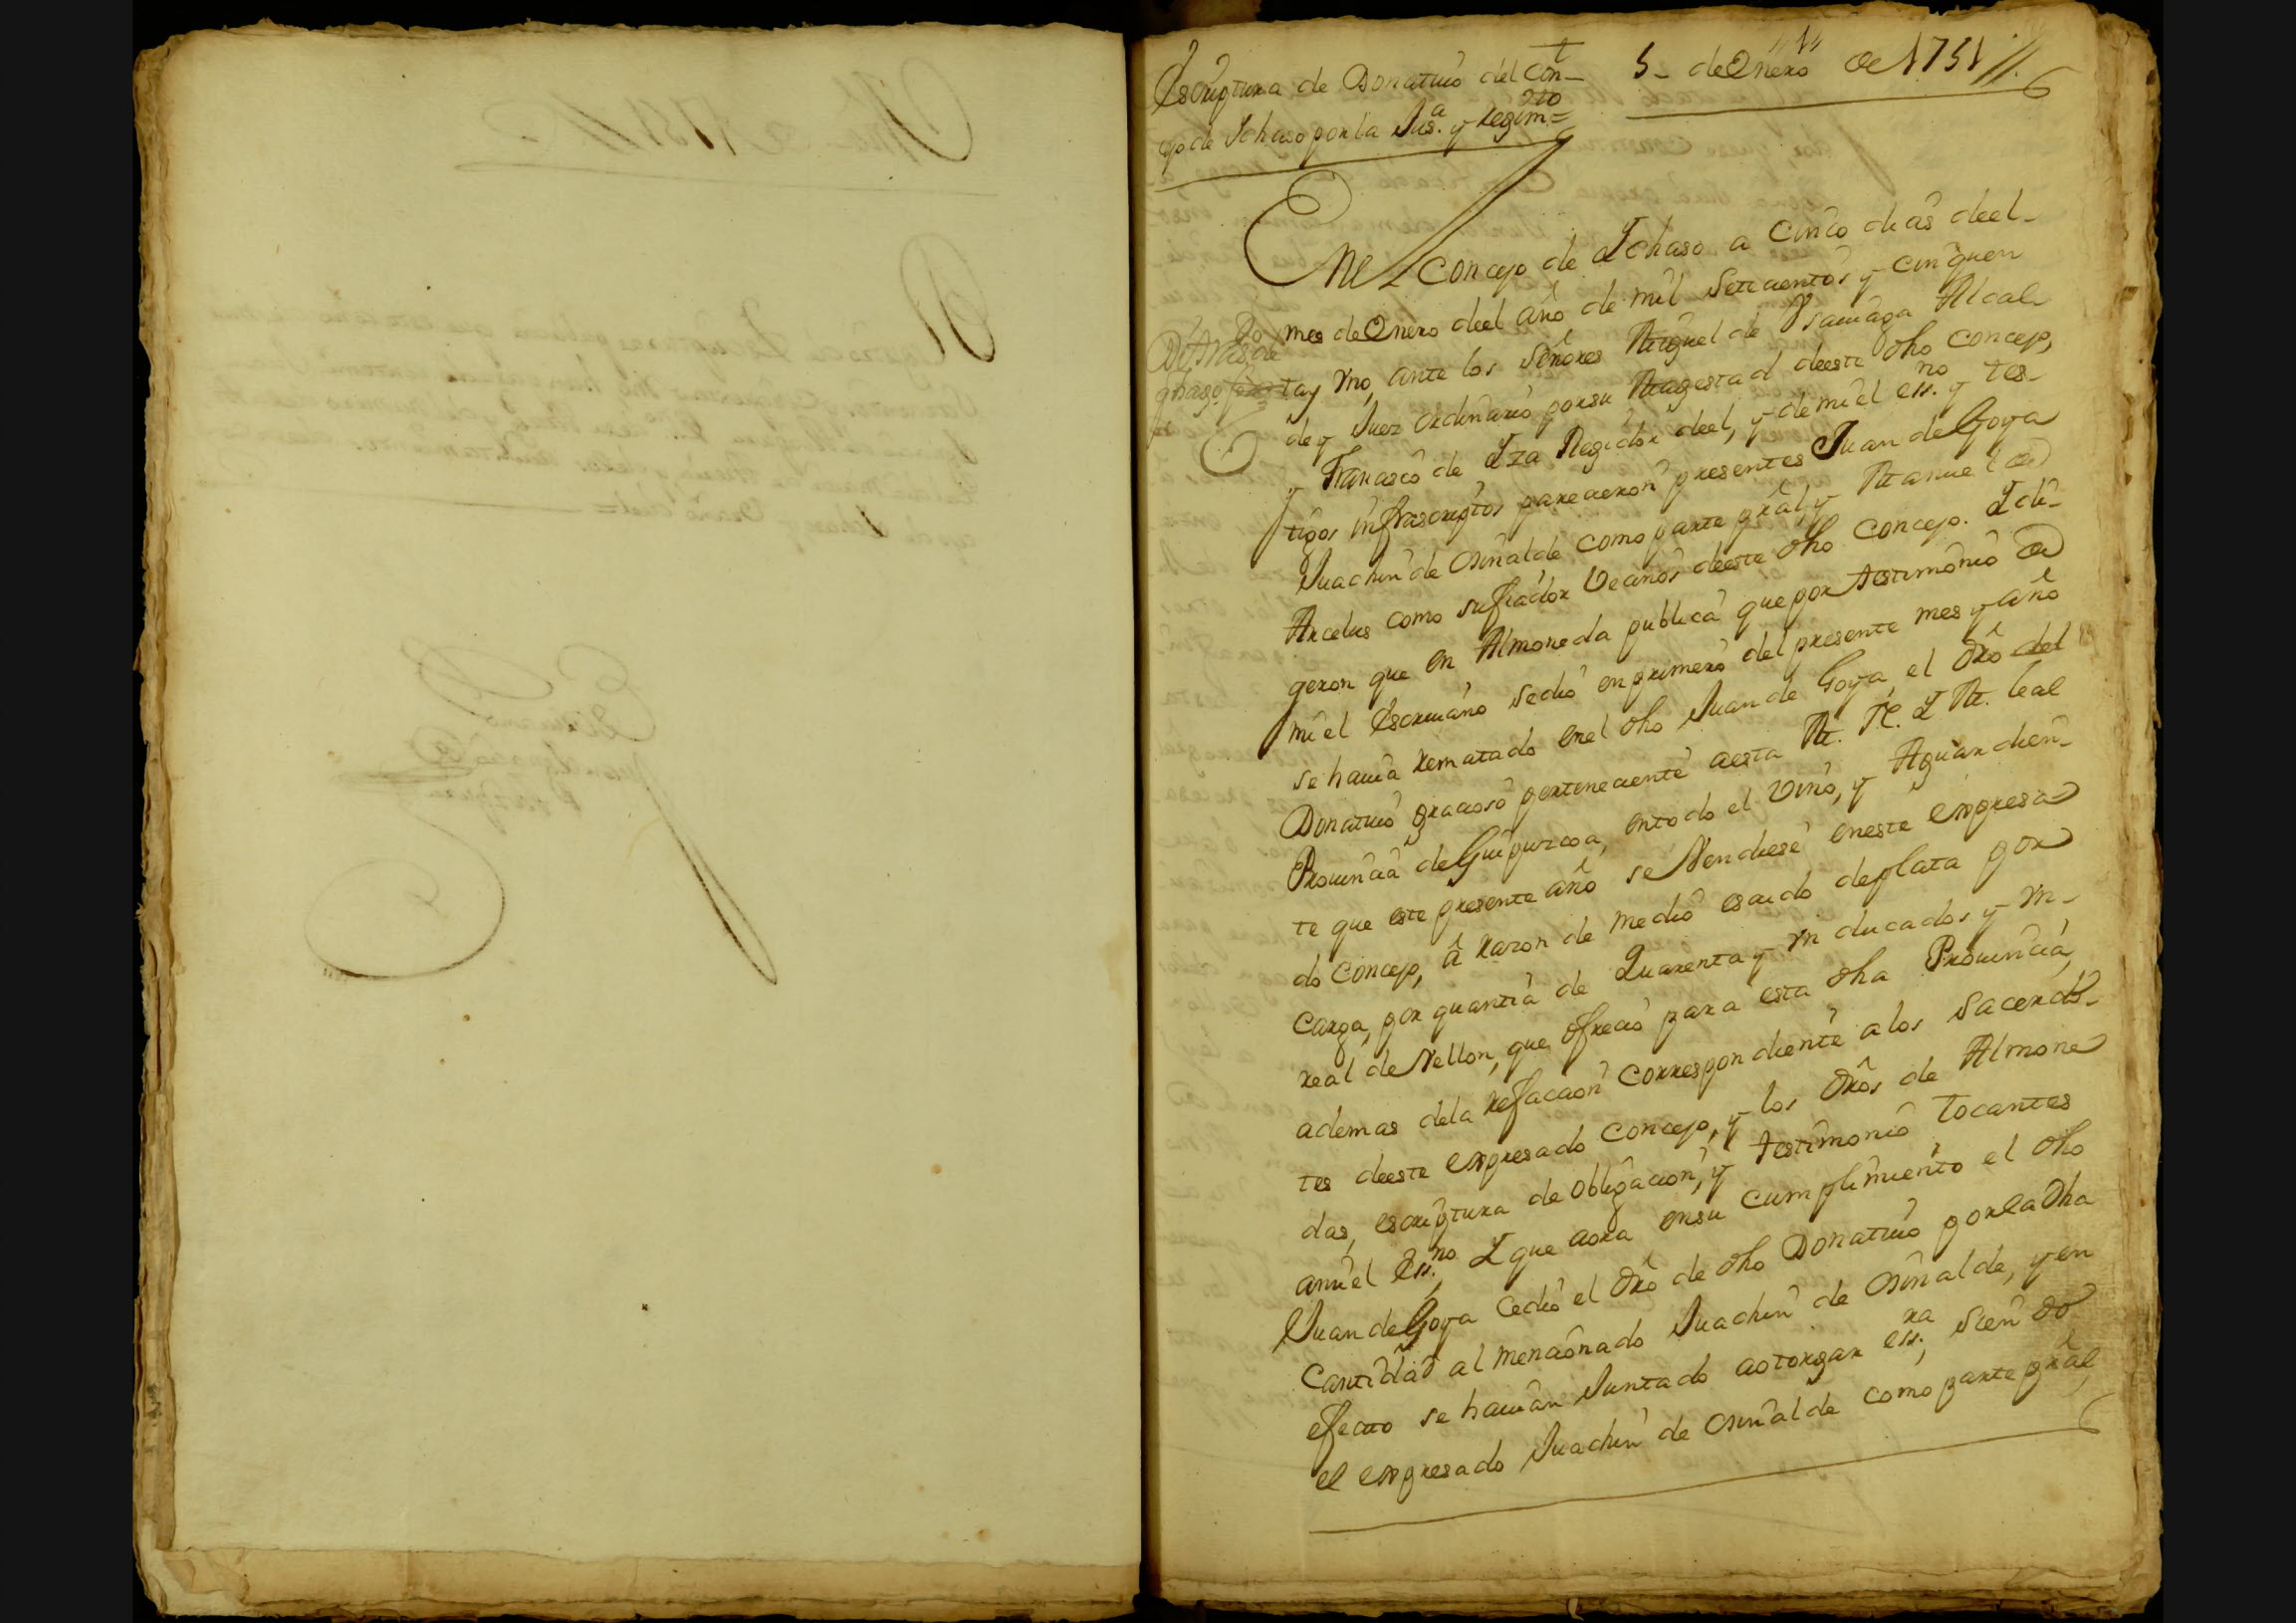 Escriptura de Donativo del Con-
cejo de Ichaso por la Jus.ª y Regim.to=
5- de Enero de 1751//.
En el Concejo de Ichaso a Cinco dias deel-
mes de Enero deel año de mil Setecientos y cinquen
ta y Vno, ante los Señores Miguel de Alcal-
de y Juez ordinario por su Magestad deeste dho Concejo,
y Francisco de Iza Regidor deel, y de mi el ess.no y tes-
tigos infrascriptos parecieron presentes Juan de Goya
Juachin de Osinalde como parte pral, y Manuel de
Arcelus como su fiador Vecinos deeste dho Concejo. I di-
geron que en Almoneda publica que por testimonio de
mi el Escriuano se dio en primero del presente mes y año
se hauia rematado en el dho Juan de Goya, el dro del
Donatiuo gracioso perteneciente a esta M. N. I M. leal
Prouincia de Guipuzcoa, en todo el Vino, y Aguardien-
te que este presente año se Vendiese en este expresa
do Concejo, â razon de medio escudo de plata por
Carga, por quantia de Quarenta y Vn ducados y Vn-
real de Vellon, que ofrecio para esta dha Prouincia,
ademas dela refaccion correspondiente a los Sacerdo-
tes deeste expresado Concejo, y los dros de Almone
das, escriptura de obligacion, y testimonio tocantes
a mi el Ess.no I que aora en su cumplimiento el dho
Juan de Goya Cedio el dro de dho Donatiuo por la dha
Cantidad al mencionado Juachin de Osinalde, y en
efecto se hauian Juntado a otorgar ess.ra, siendo
el expresado Juachin de Osinalde como parte pral,